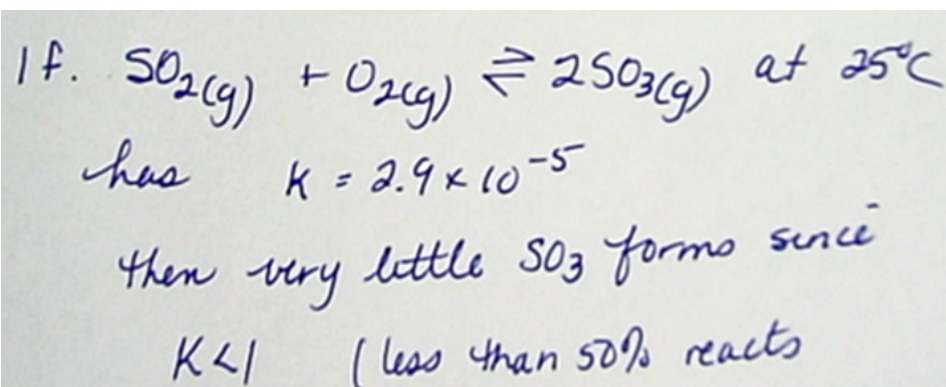 If. SO₂(g) + O₂(g) ⇌ 2SO₃(g) at 25°C
has K = 2.9 x 10⁻⁵
then very little SO₃ forms since
K<1 (less than 50% reacts